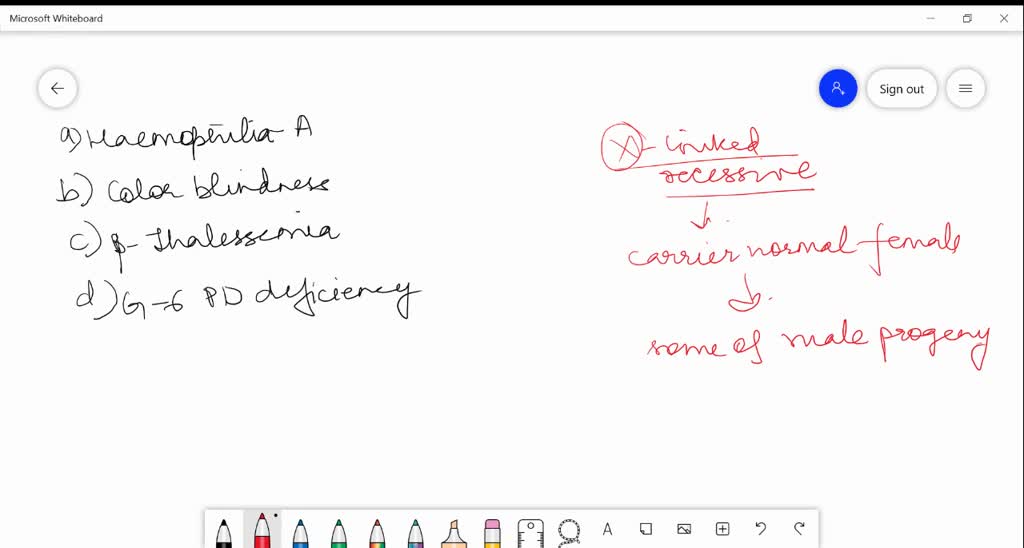 Microsoft Whiteboard
Sign out
a) Haemophilia A
b) Color blindness
c) β-thalessemia
d) G-6 PD deficiency
X-linked
recessive
carrier normal female
some of male progeny
A